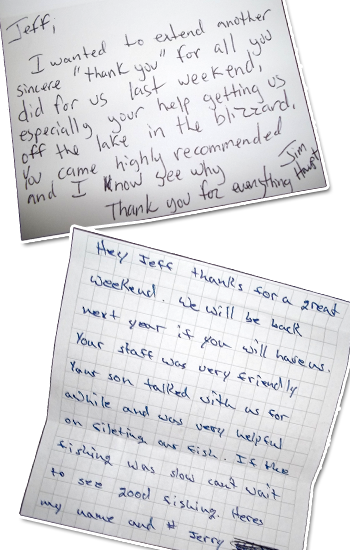 Jeff,
I wanted to extend another
sincere "thank you" for all you
did for us last weekend,
especially your help getting us
off the lake in the blizzard.
You came highly recommended
and I know see why
Jim
Thank you for everything
Hey Jeff thanks for a great
weekend. We will be back
next year if you will have us.
Your staff was very friendly
Your son talked with us for
awhile and was very helpful
on fileting our fish. If the
fishing was slow cant wait
to see good fishing. Heres
my name and # Jerry